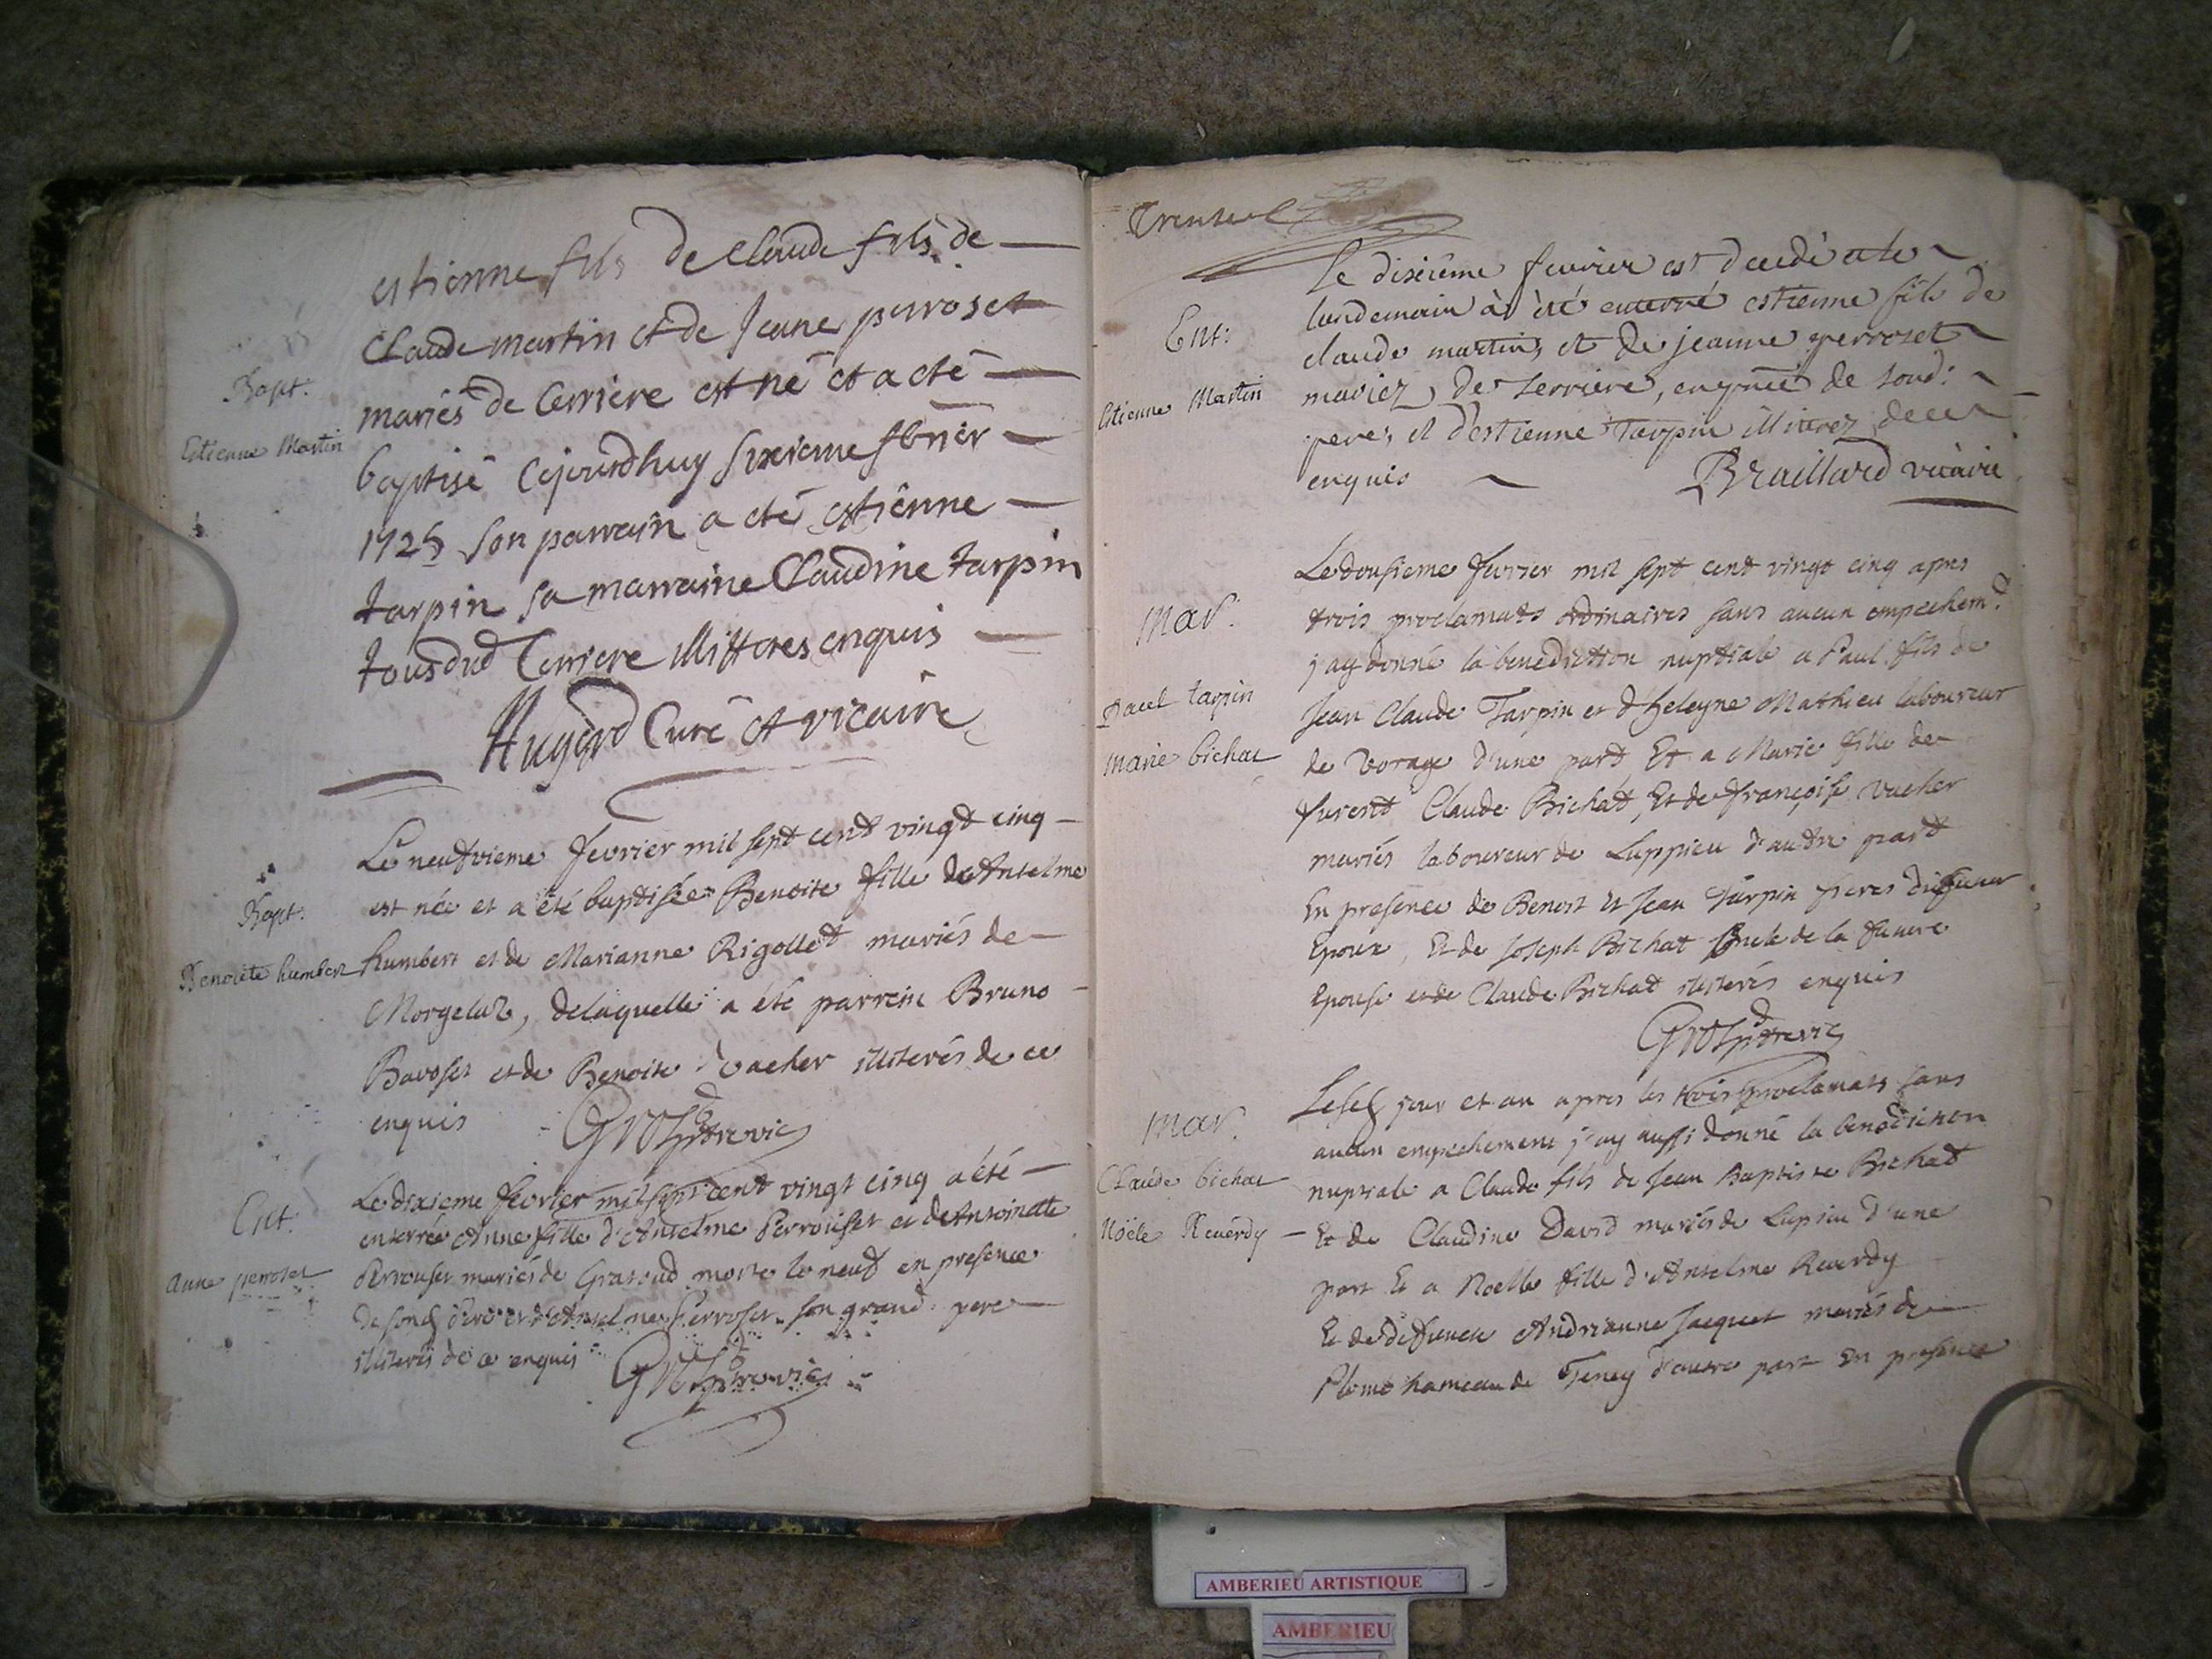 estienne fils de Claude fils de
Claude martin et de Jeane perroset
Bapt.
mariés de Cerriere est né et a eté
Estienne Martin
baptisé cejourdhuy sixieme fevrier
1725 son parrain a eté estienne
tarpin sa marraine Claudine tarpin
tous dud Cerriere illitteres enquis
Hugard Curé et vicaire
Le neufvieme fevrier mil sept cent vingt cinq
est née et a été baptisée Benoite fille de Antelme
Bapt.
Benoiete humbert
humbert et de Marianne Rigollet mariés de
Morgelaz, delaquelle a été parrein Bruno
Bavoset et de Benoite Vacher illiterés de ce
enquis
Le dixieme fevrier mil sept cent vingt cinq a été
Ent.
enterrée Anne fille d'Antelme Perrouset et de Antoinette
anne perroset
Perrouset mariés de morte le neuf en presence
de sond pere et d'Antelme Perroset son grand pere
illiterés de ce enquis
Trente
Le dixiême fevrier est decedé et le
lendemain à été enterré estienne fils de
Ent:
claude martin, et de jeanne perroset
Estienne Martin
mariez de serriere, en pnce de sond:
pere, et d'estienne Tarpin illiterez de ce
enquis
Braillard vicaire
Le dousieme fevrier mil sept cent vingt cinq apres
trois proclamats ordinaires sans aucun empechemt
mar.
j'ay donné la benediction nuptiale a Paul fils de
paul tarpin
Jean Claude Tarpin et d'heleyne Mathieu laboureur
marie bichat
de Vorage d'une part, Et a Marie fille de
furent Claude Bichat, Et de françoise vacher
mariés laboureur de Luppieu d'autre part
En presence de Benoit et Jean Tarpin freres du futur
Epoux, Et de Joseph Bichat oncle de la future
Epouse et de Claude Bichat illiterés enquis
Lesd jour et an apres les trois proclamats sans
mar.
aucun empechement j'ay aussi donné la benediction
Claude bichat
nuptiale a Claude fils de Jean Baptiste Bichat
Noële Reverdy
Et de Claudine David mariés de Lupieu d'une
part Et a Noelle fille d'Antelme Reverdy
Et de defuncte Andrianne Jacquet mariés de
hameau de Teney d'autre part En presence
AMBERIEU ARTISTIQUE
AMBERIEU